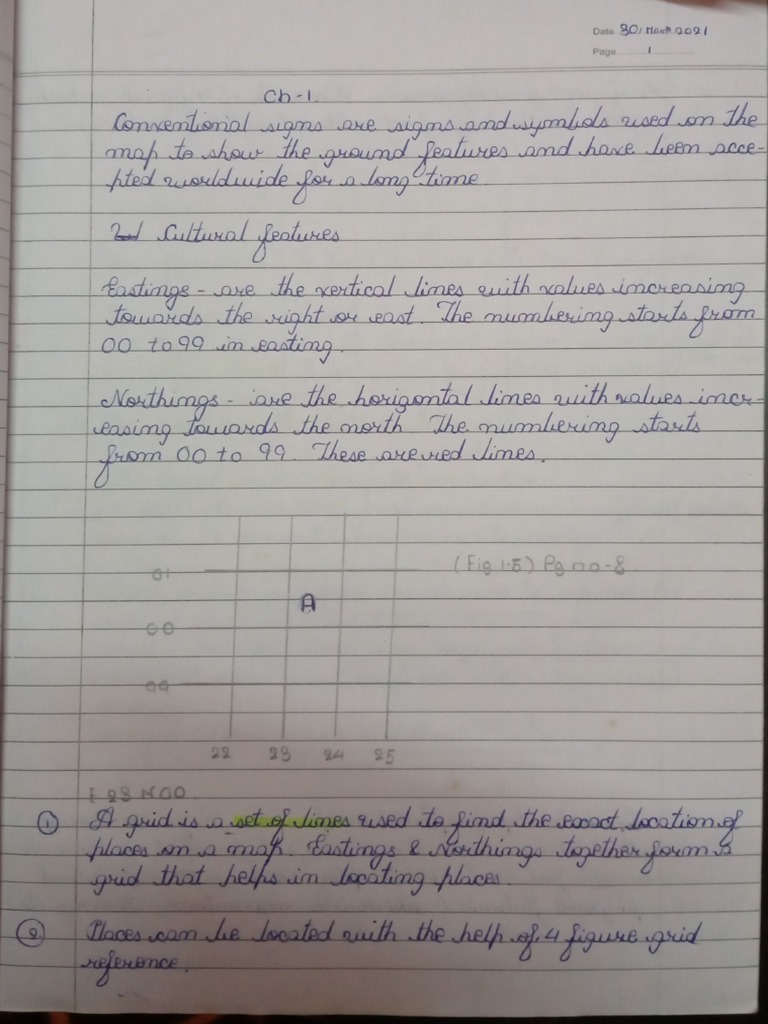 Date 30/March/2021
Page 1
Ch-1.
Conventional signs are signs and symbols used on the
map to show the ground features and have been acce-
pted worldwide for a long time
Cultural features
Eastings - are the vertical lines with values increasing
towards the right or east. The numbering starts from
00 to 99 in easting.
Northings - are the horizontal lines with values incr-
easing towards the north. The numbering starts
from 00 to 99. These are red lines.
01
(Fig 1.5) Pg no-8
A
00
99
22 23 24 25
E 23 N 00
① A grid is a set of lines used to find the exact location of
places on a map. Eastings & Northings together form a
grid that helps in locating places.
② Places can be located with the help of 4 figure grid
reference.